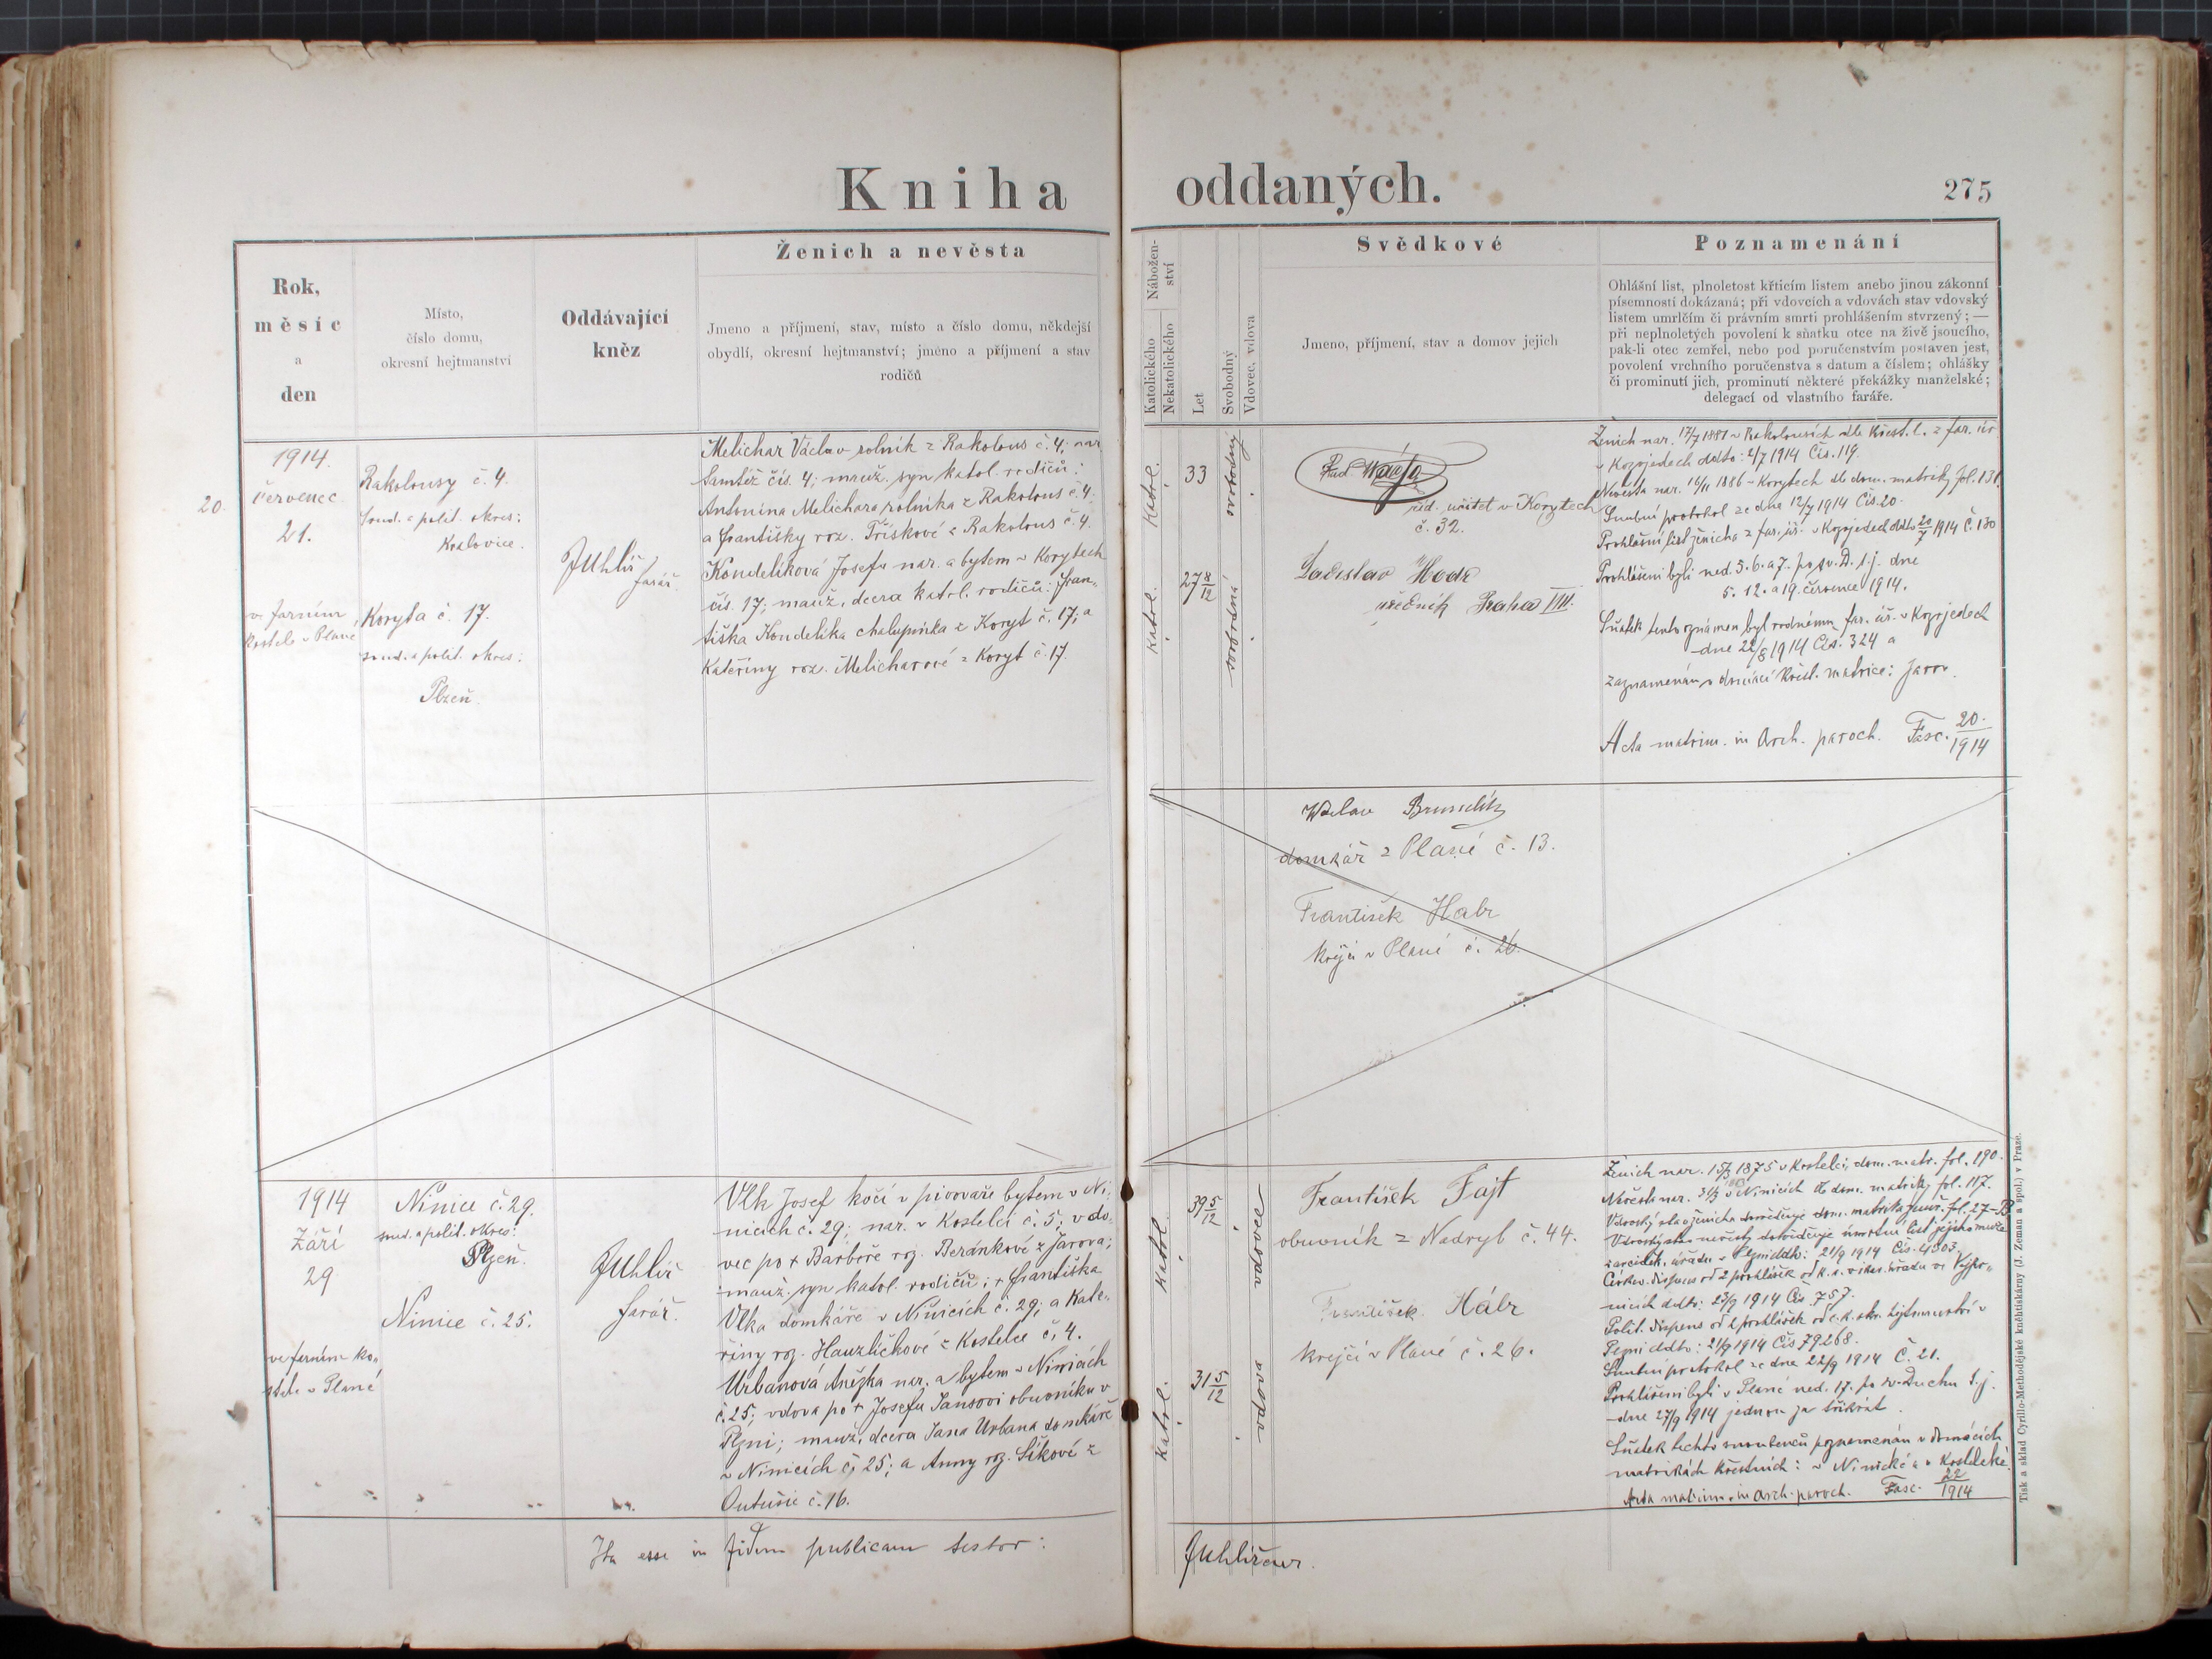 Kniha oddaných.
275
Rok,
měsíc
a
den
Místo,
číslo domu,
okresní hejtmanství
Oddávající
kněz
Ženich a nevěsta
Jmeno a příjmení, stav, místo a číslo domu, někdejší
obydlí, okresní hejtmanství; jméno a příjmení a stav
rodičů
Nábožen-
ství
Katolického
Nekatolického
Let
Svobodný
Vdovec, vdova
Svědkové
Jmeno, příjmení, stav a domov jejich
Poznamenání
Ohlášní list, plnoletost křticím listem anebo jinou zákonní
písemností dokázaná; při vdovcích a vdovách stav vdovský
listem umrlčím či právním smrti prohlášením stvrzený; —
při neplnoletých povolení k sňatku otce na živě jsoucího,
pak-li otec zemřel, nebo pod poručenstvím postaven jest,
povolení vrchního poručenstva s datum a číslem; ohlášky
či prominutí jich, prominutí některé překážky manželské;
delegací od vlastního faráře.
20.
1914.
červenec
21.
ve farním
kostele v Plané
Rakolousy č. 4.
soud. a polit. okres:
Kralovice.
Koryta č. 17.
soud. a polit. okres:
Plzeň.
JUhlíř
farář.
Melichar Václav rolník z Rakolous č. 4; nar.
tamtéž čís. 4; manž. syn katol. rodičů:
Antonína Melichara rolníka z Rakolous č. 4.
a Františky roz. Třískové z Rakolous č. 4.
Kondelíková Josefa nar. a bytem v Korytech
čís. 17; manž. dcera katol. rodičů: Fran-
tiška Kondelíka chalupníka z Koryt č. 17; a
Kateřiny roz. Melicharové z Koryt č. 17.
Katol.
33
svobodný
Katol.
27 8/12
svobodná
říd. učitel v Korytech
č. 32.
Ladislav
úředník Praha VIII.
Ženich nar. 17/7 1881 v Rakolousích dle křest. l. z far. úř.
v Kozojedech ddto: 2/7 1914 Čís. 119.
Nevěsta nar. 16/11 1886 v Korytech dle dom. matriky fol. 131.
Snubní protokol ze dne 12/7 1914 Čís. 20.
Prohlášní list ženicha z far. úř. v Kozojedech ddto 20/7 1914 Č. 130
Prohlášeni byli ned. 5. 6. a 7. po sv. D. t. j. dne
5. 12. a 19. července 1914.
Sňatek tento oznámen byl rodnému far. úř. v Kozojedech
dne 22/8 1914 Čís. 324 a
zaznamenán v domácí křest. matrice: Jarov.
Acta matrim. in Arch. paroch. Fasc. 20./1914
domkář z Plané č. 13.
František Habr
krejčí v Plané č. 26.
1914
Září
29
ve farním ko-
stele v Plané
Nimice č. 29.
soud. a polit. okres:
Plzeň.
Nimice č. 25.
JUhlíř
farář.
Vlk Josef kočí v pivovaře bytem v Ni-
micích č. 29; nar. v Kostelci č. 5; vdo-
vec po + Barboře roz. Beránkové z Jarova;
manž. syn katol. rodičů: + Františka
Vlka domkáře v Nimicích č. 29; a Kate-
řiny roz. Hauzlíčkové z Kostelce č. 4.
Urbanová Anežka nar. a bytem v Nimicích
č. 25; vdova po + Josefu Jansovi obuvníku v
Plzni; manž. dcera Jana Urbana domkáře
v Nimicích č. 25; a Anny roz. Šíkové z
č. 16.
Katol.
39 5/12
vdovec
Katol.
31 5/12
vdova
František Fajt
obuvník z Nadryb č. 44.
František Hábr
krejčí v Plané č. 26.
Ženich nar. 15/3 1875 v Kostelci; dom. matr. fol. 190.
Nevěsta nar. 31/3 v Nimicích dle dom. matriky fol. 117.
Vdovský stav ženicha dosvědčuje dom. matrika fol. 27
Vdovský stav nevěsty dosvědčuje úmrtní list jejího muže
z arciděk. úřadu v Plzni ddto: 21/9 1914 Čís. 4303.
Církev. dispens od 2 prohlášek od k. a. vikar. úřadu ve
nicích ddto: 23/9 1914 Čís 757.
Polit. dispens od 2 prohlášek od c. k. okr. hejtmanství v
Plzni ddto: 21/9 1914 Čís 79268.
Snubní protokol ze dne 22/9 1914 Č. 21.
Prohlášeni byli v Plané ned. 17. po sv. Duchu t. j.
dne 27/9 1914 jednou za třikrát.
Sňatek těchto snoubenců poznamenán v domácích
matrikách křestních: v Nimické a v Kostelecké.
Acta matrim. in Arch. paroch. Fasc. /1914
Ita esse in fidem publicam testor:
Tisk a sklad Cyrillo-Methodějské kněhtiskárny (J. Zeman a spol.) v Praze.